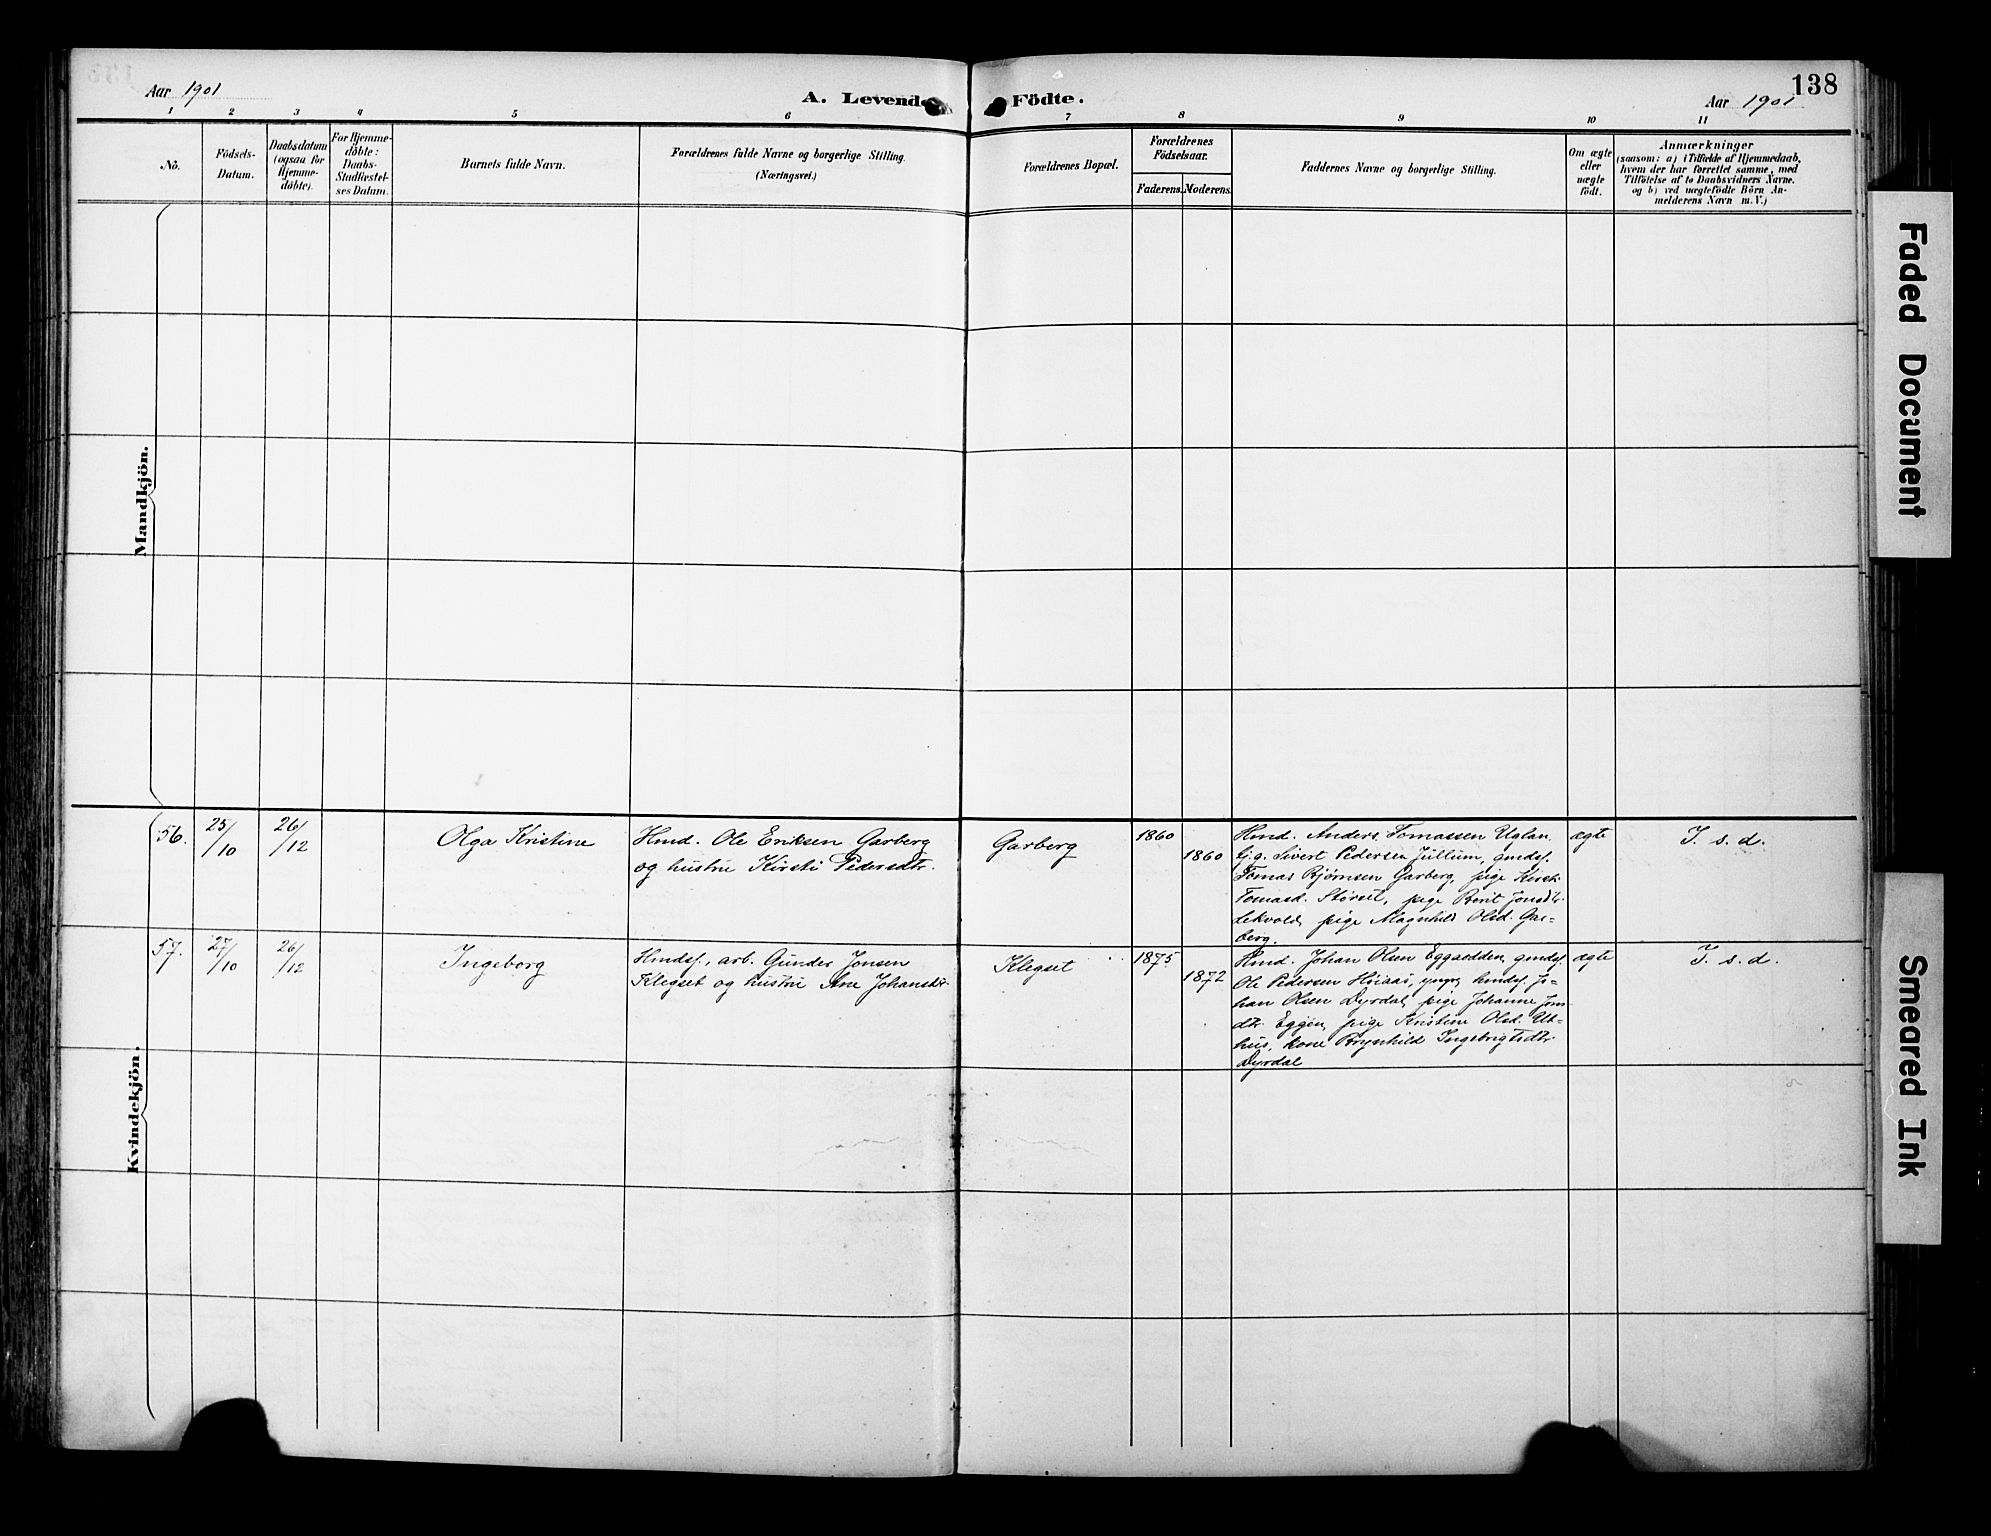 138
Aar 1901
A. Levende Födte.
Aar 1901
1 2 3 4 5 6 7 8 9 10 11
No.
Födsels-
Datum.
Daabsdatum
(ogsaa for
Hjemme-
döbte).
For Hjemme-
döbte:
Daabs-
Stadfæstel-
ses Datum.
Barnets fulde Navn.
Forældrenes fulde Navne og borgerlige Stilling.
(Næringsvei.)
Forældrenes Bopæl.
Forældrenes
Födselsaar.
Faderens. Moderens.
Faddernes Navne og borgerlige Stilling.
Om ægte
eller
uægte
födt.
Anmærkninger
(saasom: a) i Tilfælde af Hjemmedaab,
hvem der har forrettet samme, med
Tilföielse af to Daabsvidners Navne.
og b) ved uægtefödte Börn An-
melderens Navn m. V.)
Mandkjön.
Kvindekjön.
56.
25/10
26/12
Olga Kristine
Hmd. Ole Eriksen Garberg
og hustru Kirsti Pedersdtr.
Garberg
1860
1860
Hmd. Anders Tomassen Uglan,
Sivert Pedersen Jullum, gmdsf.
Tomas Bjørnsen Garberg, pige
Tomasd. Størset, pige Berit Jonsdtr.
Lekvold, pige Magnhild Olsd. Gar-
berg.
ægte
I. s. d.
57.
27/10
26/12
Ingeborg
Hmdsf., arb. Gunder Jonsen
Klegset og hustru Ane Johansdtr.
Klegset
1875
1872
Hmd. Johan Olsen Eggsedden, gmdsf.
Ole Pedersen Høiaas, yngre, hmdsf. Jo-
han Olsen Dyrdal, pige Johanne Jons-
dtr. Eggen, pige Kristine Olsd. Ut-
hus, kone Brynhild Ingebrigtsdtr.
Dyrdal
ægte
I. s. d.
Faded Document
Smeared Ink